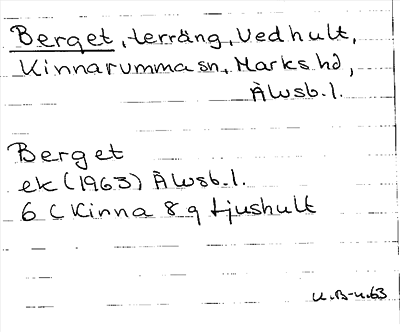 Berget, terräng, Vedhult,
Kinnarumma sn, Marks hd,
Älvsb. l.
Berget
ek (1963) Älvsb. l.
6 C Kinna 8 g Ljushult